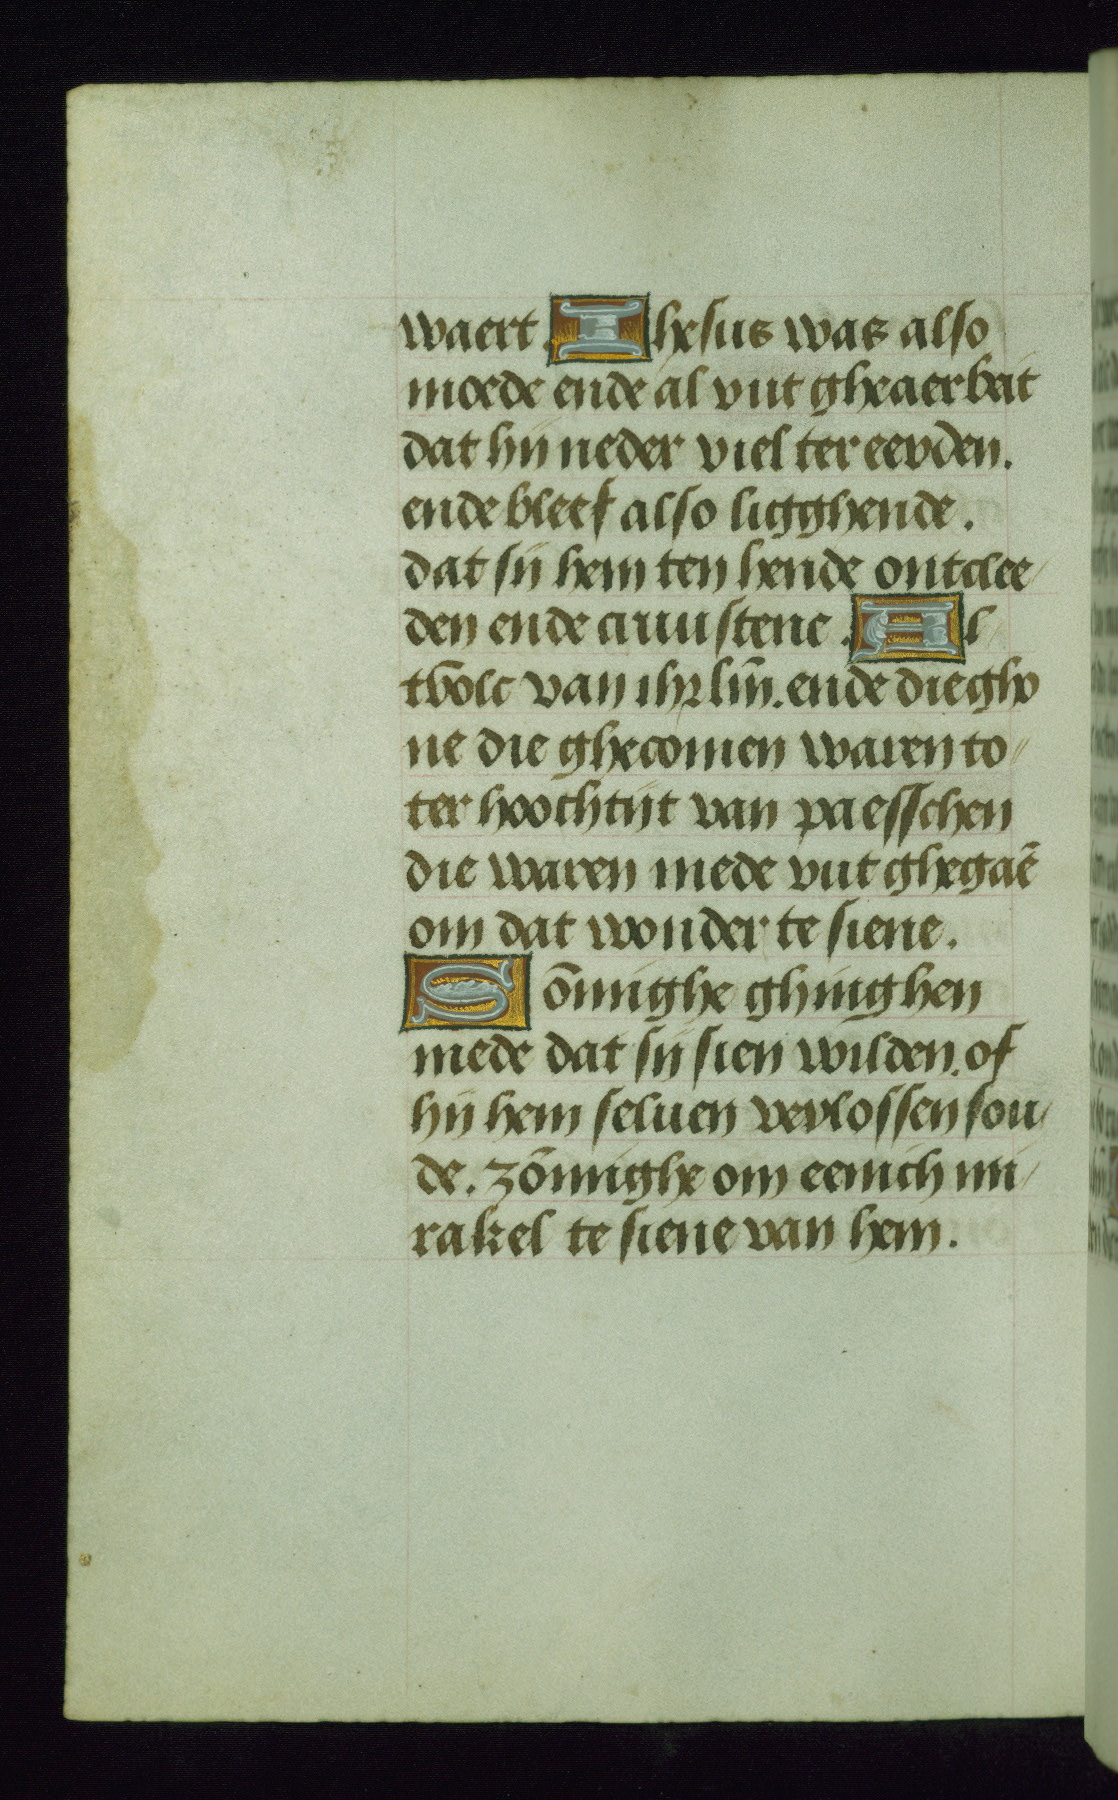 waert. Ihesus was also
moede ende al vut ghearbeit
dat hij neder viel ter eerden.
ende bleef also ligghende.
dat sij hem ten hende ontclee
den ende cruustene. Al
tvolc van ihrlm̄. ende diegho
ne die ghecomen waren to
ter hoochtijt van paesschen
die waren mede vut ghegaē
om dat wonder te siene.
Sōmighe ghinghen
mede dat sij sien wilden. of
hij hem seluen verlossen sou
de. zōmighe om eenich mi
rakel te siene van hem.